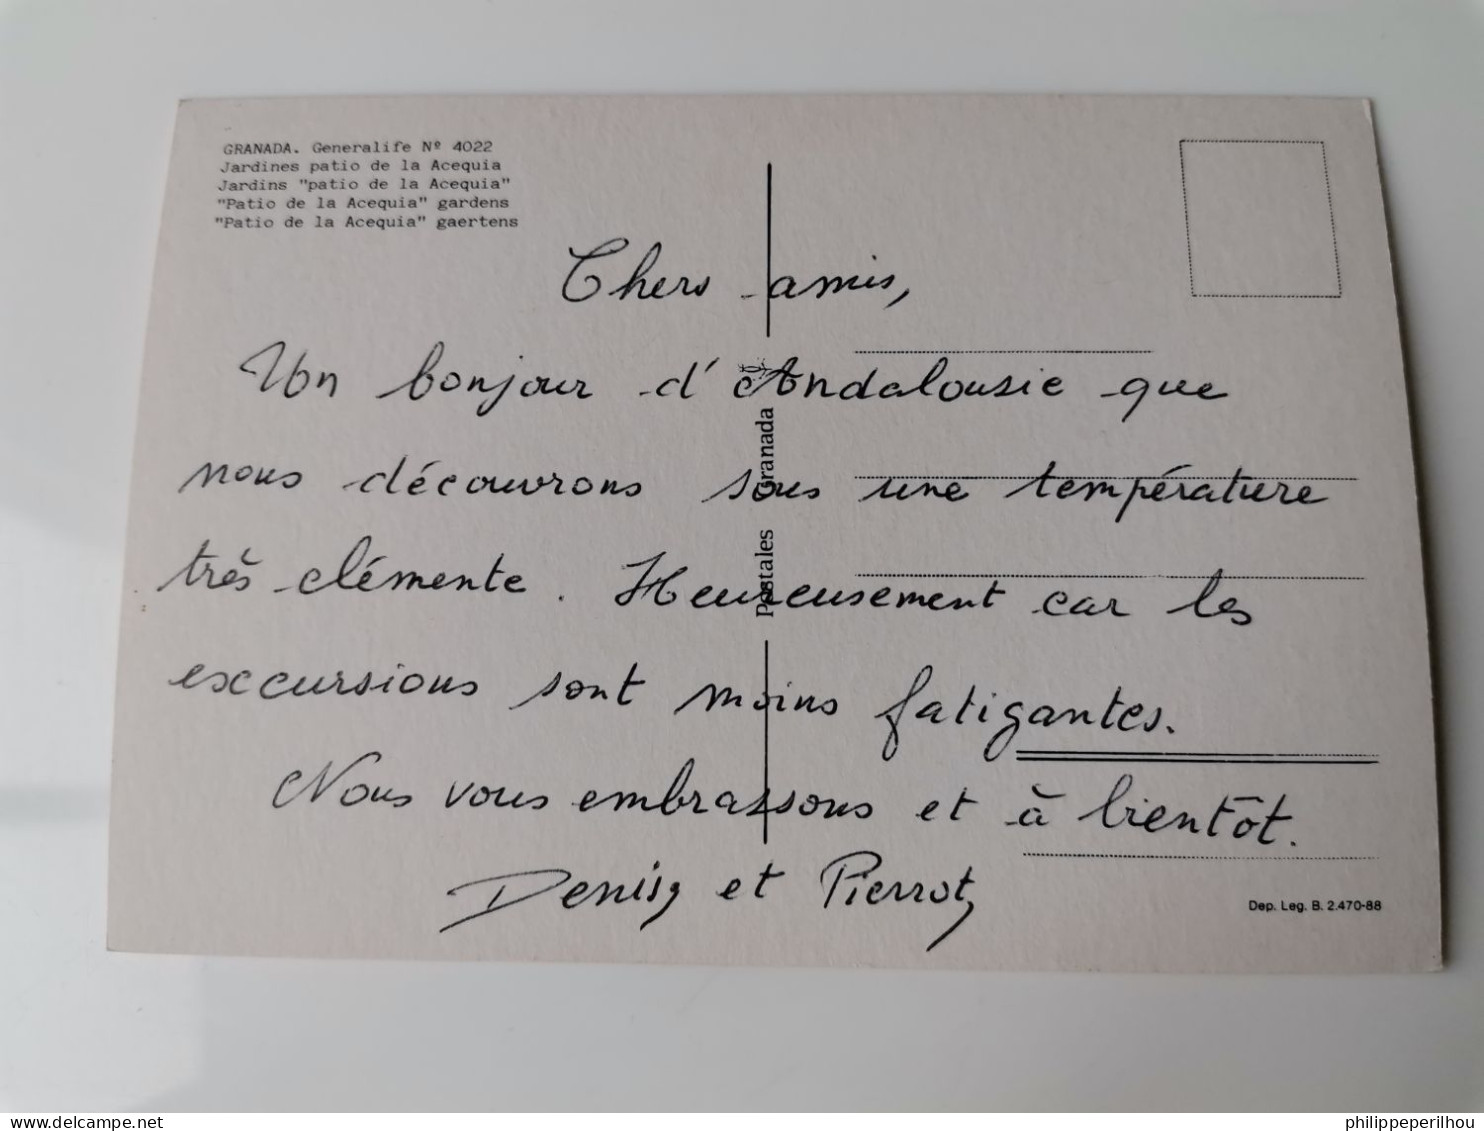 GRANADA. Generalife Nº 4022
Jardines patio de la Acequia
Jardins "patio de la Acequia"
"Patio de la Acequia" gardens
"Patio de la Acequia" gaertens
Chers amis,
Un bonjour d'Andalousie que
nous découvrons sous une température
très clémente. Heureusement car les
excursions sont moins fatigantes.
Nous vous embrassons et à bientôt.
Denise et Pierrot
Postales Granada
Dep. Leg. B. 2.470-88
philippeperilhou